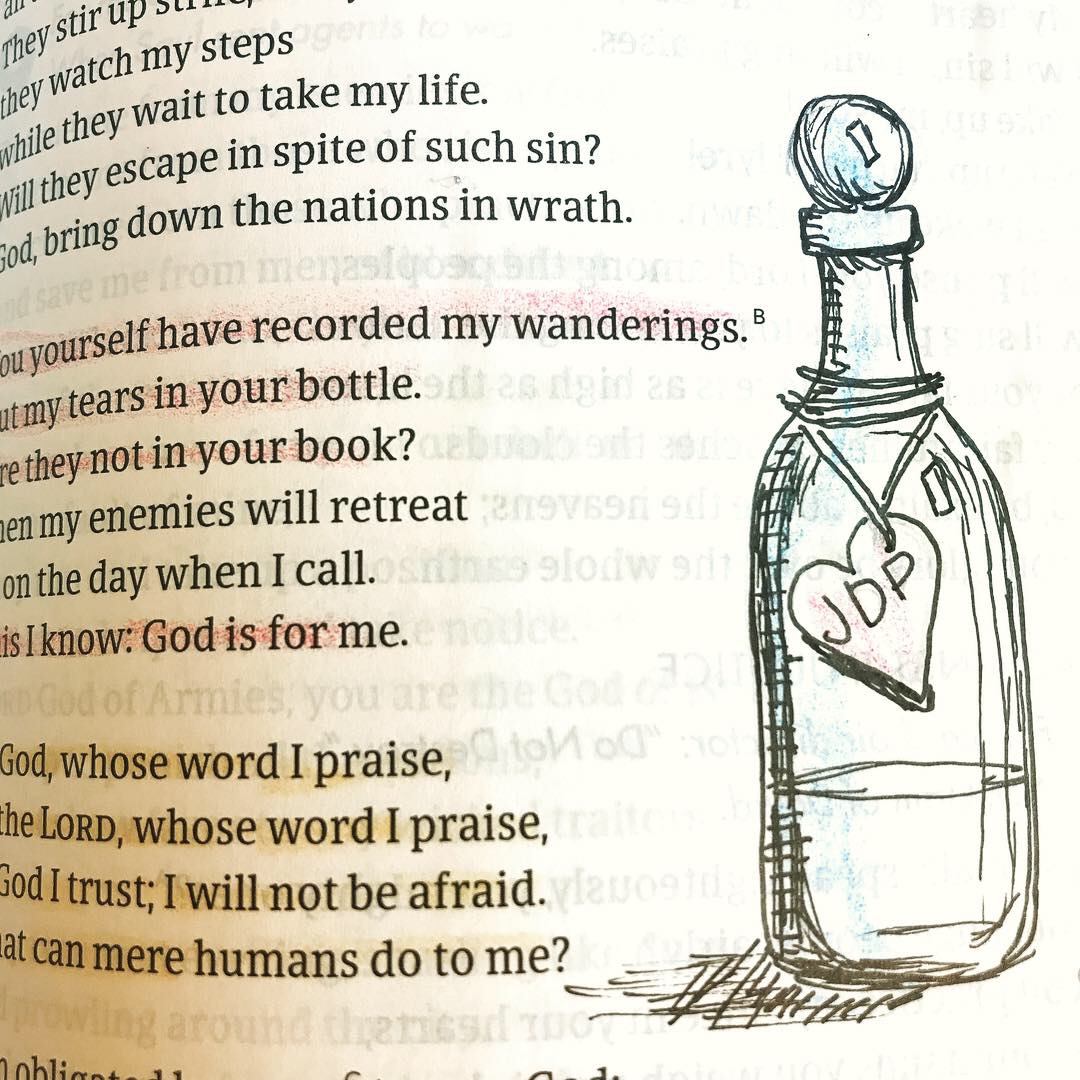 They stir up
they watch my steps
while they wait to take my life.
Will they escape in spite of such sin?
God, bring down the nations in wrath.
ou yourself have recorded my wanderings.ᴮ
ut my tears in your bottle.
re they not in your book?
hen my enemies will retreat
on the day when I call.
is I know: God is for me.
God, whose word I praise,
the LORD, whose word I praise,
God I trust; I will not be afraid.
hat can mere humans do to me?
God;
JDP